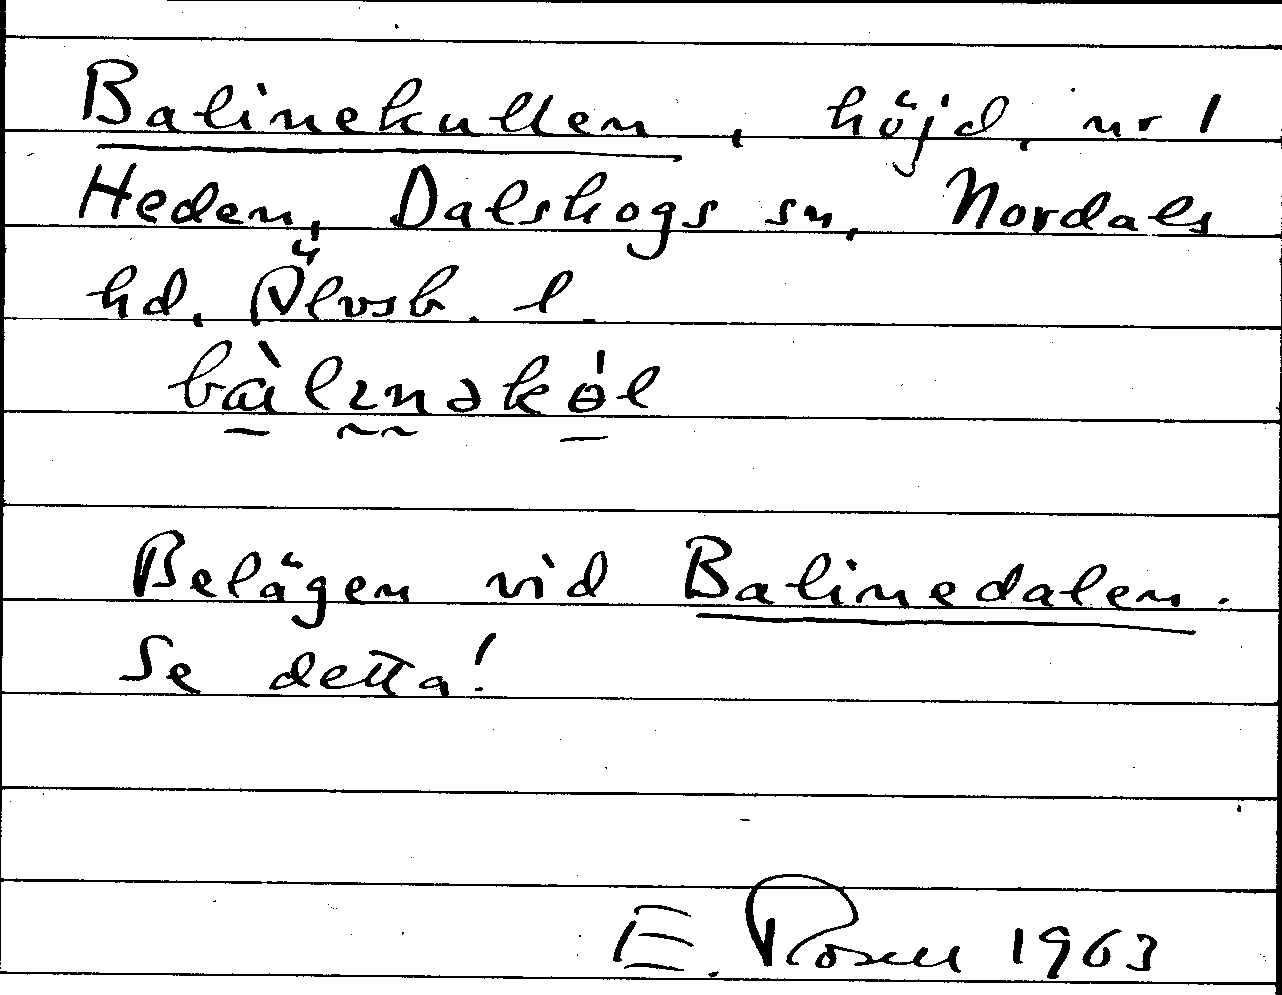 Balinekullen, höjd, nr 1
Heden, Dalskogs sn, Nordals
hd, Älvsb. l.
bàlɪnəkɵ́l
Belägen vid Balinedalen.
Se detta!
E. Rosell 1963